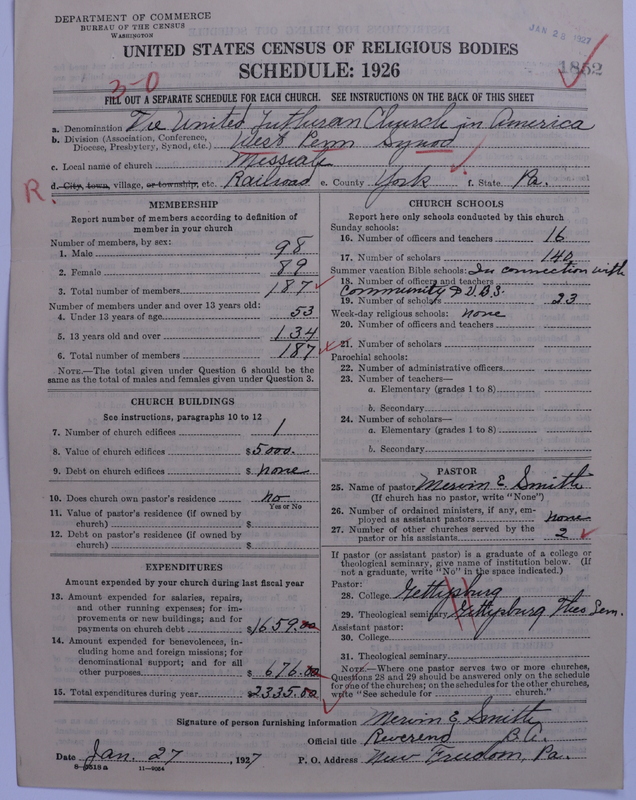 DEPARTMENT OF COMMERCE
BUREAU OF THE CENSUS
WASHINGTON
JAN 28 1927
UNITED STATES CENSUS OF RELIGIOUS BODIES
SCHEDULE: 1926
1852
3-0
FILL OUT A SEPARATE SCHEDULE FOR EACH CHURCH. SEE INSTRUCTIONS ON THE BACK OF THIS SHEET
a. Denomination The United Lutheran Church in America
b. Division (Association, Conference, Diocese, Presbytery, Synod, etc.) West Penn Synod
c. Local name of church Messiah
R. d. City, town, village, or township, etc. Railroad e. County York f. State Pa.
MEMBERSHIP
Report number of members according to definition of
member in your church
Number of members, by sex:
1. Male 98
2. Female 89
3. Total number of members 187
Number of members under and over 13 years old:
4. Under 13 years of age 53
5. 13 years old and over 134
6. Total number of members 187
NOTE.—The total given under Question 6 should be
same as the total of males and females given under Question 3.
CHURCH BUILDINGS
See instructions, paragraphs 10 to 12
7. Number of church edifices 1
8. Value of church edifices $5000.
9. Debt on church edifices $ none
10. Does church own pastor's residence no
Yes or No
11. Value of pastor's residence (if owned by
church) $
12. Debt on pastor's residence (if owned by
church) $
EXPENDITURES
Amount expended by your church during last fiscal year
13. Amount expended for salaries, repairs,
and other running expenses; for im-
provements or new buildings; and for
payments on church debt $1659.00
14. Amount expended for benevolences, in-
cluding home and foreign missions; for
denominational support; and for all
other purposes $ 676.00
15. Total expenditures during year $2335.00
CHURCH SCHOOLS
Report here only schools conducted by this church
Sunday schools:
16. Number of officers and teachers 16
17. Number of scholars 140
Summer vacation Bible schools: In connection with
18. Number of officers and teachers
Community D.V.B.S.
19. Number of scholars 23
Week-day religious schools: none
20. Number of officers and teachers
21. Number of scholars
Parochial schools:
22. Number of administrative officers
23. Number of teachers—
a. Elementary (grades 1 to 8)
b. Secondary
24. Number of scholars—
a. Elementary (grades 1 to 8)
b. Secondary
PASTOR
25. Name of pastor Mervin E. Smith
(If church has no pastor, write "None")
26. Number of ordained ministers, if any, em-
ployed as assistant pastors none
27. Number of other churches served by the
pastor or his assistants 2
If pastor (or assistant pastor) is a graduate of a college or
theological seminary, give name of institution below. (If
not a graduate, write "No" in the space indicated.)
Pastor:
28. College Gettysburg
29. Theological seminary Gettysburg Theo. Sem.
Assistant pastor:
30. College
31. Theological seminary
NOTE.—Where one pastor serves two or more churches,
Questions 28 and 29 should be answered only on the schedule
for one of the churches; on the schedules for the other churches,
write "See schedule for church."
Signature of person furnishing information Mervin E. Smith
Official title Reverend B.A.
Date Jan. 27, 1927 P. O. Address New Freedom, Pa.
8-5518a 11-9354